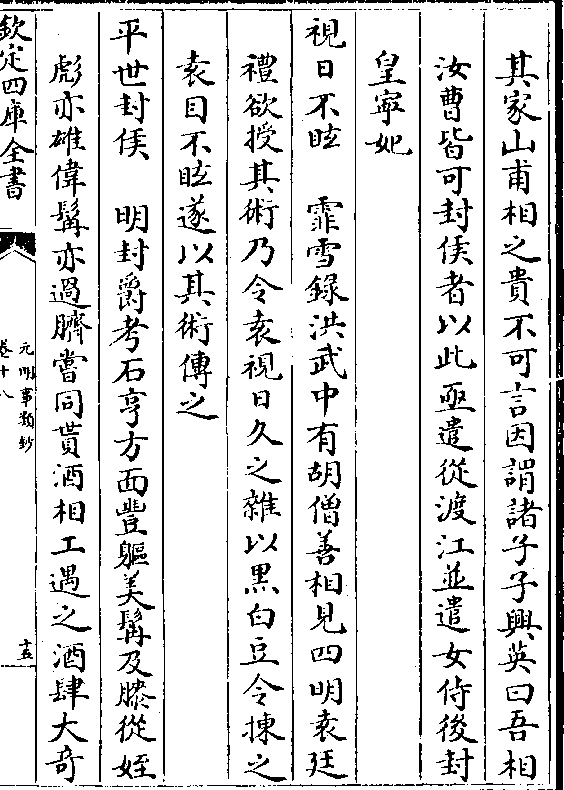 其家山甫相之貴不可言因謂諸子子興英曰吾相
汝曹皆可封侯者以此亟遣從渡江並遣女侍後封
皇寜妃
視日不眩　霏雪錄洪武中有胡僧善相見四明袁廷
禮欲授其術乃令袁視日久之雜以黒白豆令揀之
袁目不眩遂以其術傳之
平世封侯　明封爵考石亨方面豐軀美髯及膝從姪
彪亦雄偉髯亦過臍嘗同貰酒相工遇之酒肆大奇
欽定四庫全書
元明事類鈔
卷十八
十五